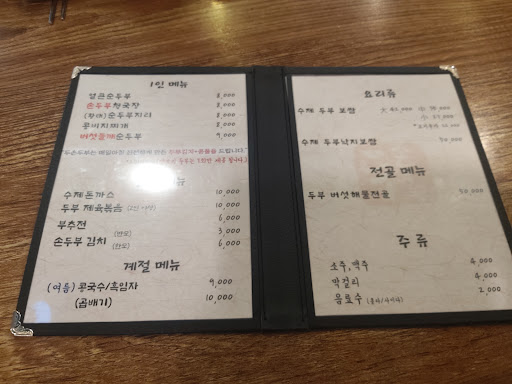 1인 메뉴
얼큰순두부 8,000
순두부청국장 8,000
(황태)순두부지리 8,000
콩비지찌개 8,000
버섯들깨순두부 9,000
메뉴
수제돈까스 10,000
두부제육볶음 10,000
부추전 6,000
(반모) 3,000
손두부 김치 (한모) 6,000
계절 메뉴
(여름) 콩국수/흑임자 9,000
(곱배기) 10,000
요리류
수제 두부 보쌈
수제 두부낙지보쌈
전골 메뉴
두부 버섯해물전골
주류
소주, 맥주 4,000
막걸리 4,000
음료수 (콜라/사이다) 2,000